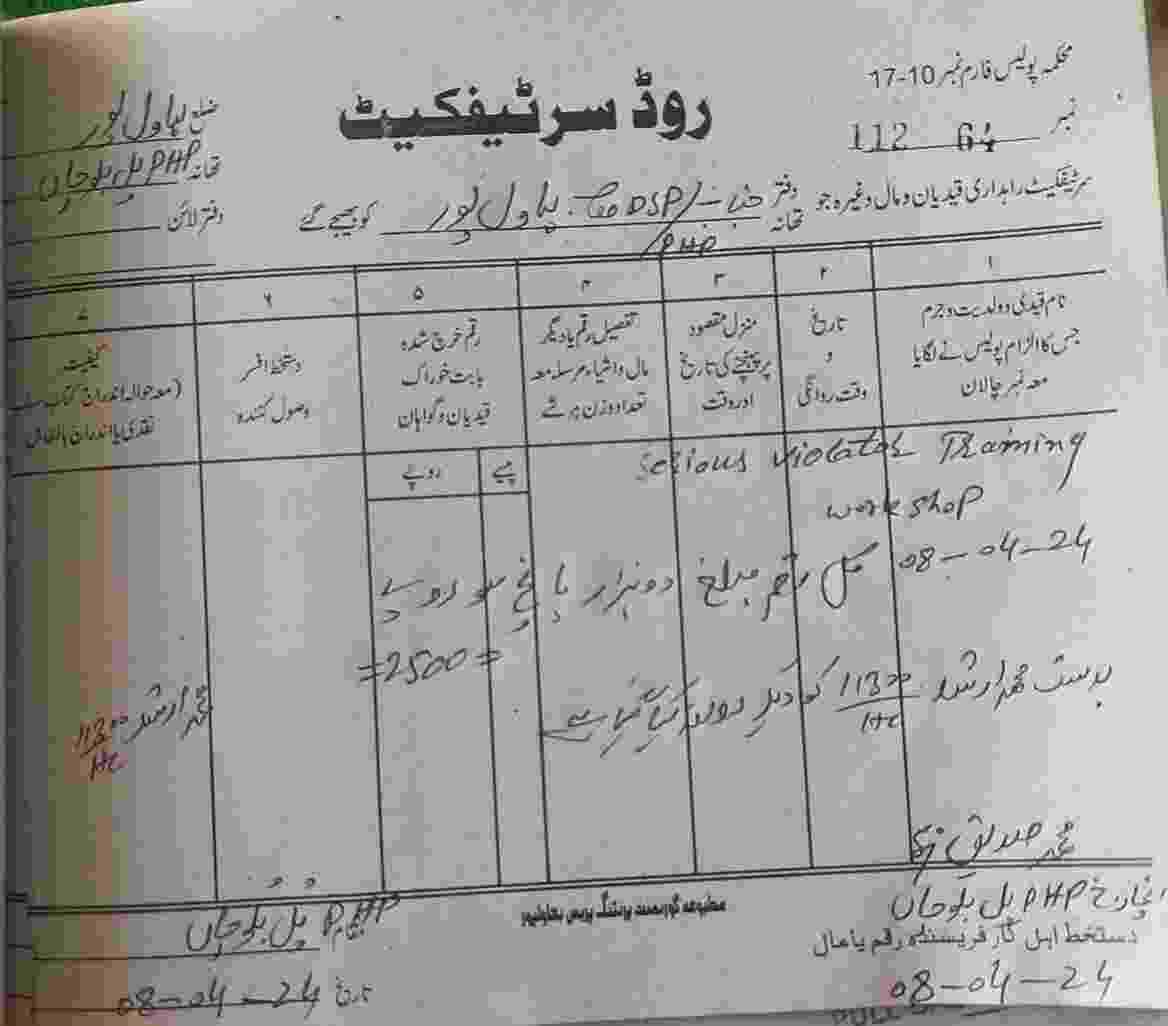 محکمہ پولیس فارم نمبر 10-17
روڈ سرٹیفکیٹ
ضلع بہاول پور
نمبر 64 112
تھانہ PHP پل بلوچاں
سرٹیفکیٹ راہداری قیدیان و مال وغیرہ جو دفتر تھانہ جناب DSP/PHP بہاول پور کو بھیجے گئے
دفتر لائن
۱ ۲ ۳ ۴ ۵ ۶ ۷
نام قیدی و ولدیت و جرم
جس کا الزام پولیس نے لگایا
معہ نمبر چالان
تاریخ
و
وقت روانگی
منزل مقصود
پر پہنچنے کی تاریخ
اور وقت
تفصیل رقم یا دیگر
مال و اشیاء مرسلہ معہ
تعداد و وزن ہر شے
رقم خرچ شدہ
بابت خوراک
قیدیان و گواہان
دستخط افسر
وصول کنندہ
کیفیت
(معہ حوالہ اندراج کتاب
نقدی یا اندراج
پیسے روپے
Serious violator Training
workshop
08-04-24 کل رقم مبلغ دو ہزار پانچ سو روپے
=2500=
بدست محمد ارشد 1130/HC کو دیکر روانہ کیا گیا ہے
محمد ارشد 1130/HC
محمد صدیق
انچارج PHP پل بلوچاں
دستخط اہل کار فریسندہ رقم یا مال
08-04-24
مطبوعہ گورنمنٹ پرنٹنگ پریس بہاولپور
PHP پل بلوچاں
تاریخ 08-04-24